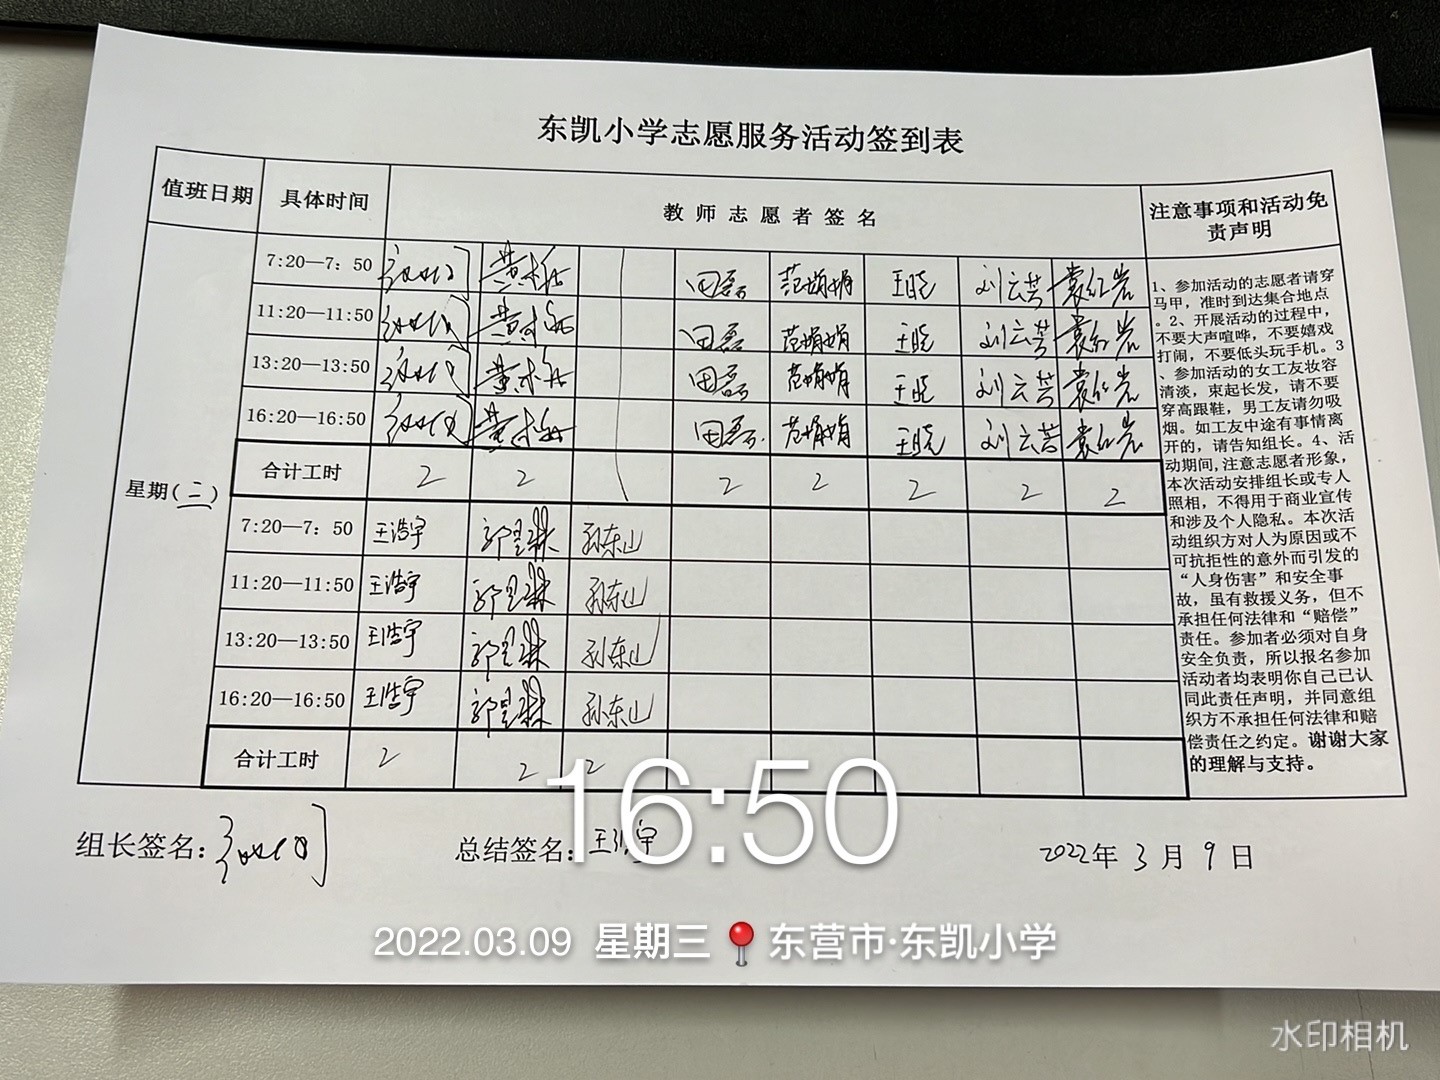 东凯小学志愿服务活动签到表
值班日期 具体时间 教师志愿者签名 注意事项和活动免
责声明
7:20—7：50 田磊 范娟娟 王晓 刘云芸 袁红岩
11:20—11:50 田磊 范娟娟 王晓 刘云芸 袁红岩
13:20—13:50 田磊 范娟娟 王晓 刘云芸 袁红岩
16:20—16:50 田磊 范娟娟 王晓 刘云芸 袁红岩
合计工时 2 2 2 2 2 2 2
星期(三)
7:20—7：50 王浩宇 孙东山
11:20—11:50 王浩宇 孙东山
13:20—13:50 王浩宇 孙东山
16:20—16:50 王浩宇 孙东山
合计工时 2 2 2
1、参加活动的志愿者请穿
马甲，准时到达集合地点
。2、开展活动的过程中，
不要大声喧哗，不要嬉戏
打闹，不要低头玩手机。3
、参加活动的女工友妆容
清淡，束起长发，请不要
穿高跟鞋，男工友请勿吸
烟。如工友中途有事情离
开的，请告知组长。4、活
动期间,注意志愿者形象，
本次活动安排组长或专人
照相，不得用于商业宣传
和涉及个人隐私。本次活
动组织方对人为原因或不
可抗拒性的意外而引发的
“人身伤害”和安全事
故，虽有救援义务，但不
承担任何法律和“赔偿”
责任。参加者必须对自身
安全负责，所以报名参加
活动者均表明你自己已认
同此责任声明，并同意组
织方不承担任何法律和赔
偿责任之约定。谢谢大家
的理解与支持。
组长签名： 总结签名：王浩宇 2022年 3 月 9 日
16:50
2022.03.09 星期三 东营市·东凯小学
水印相机